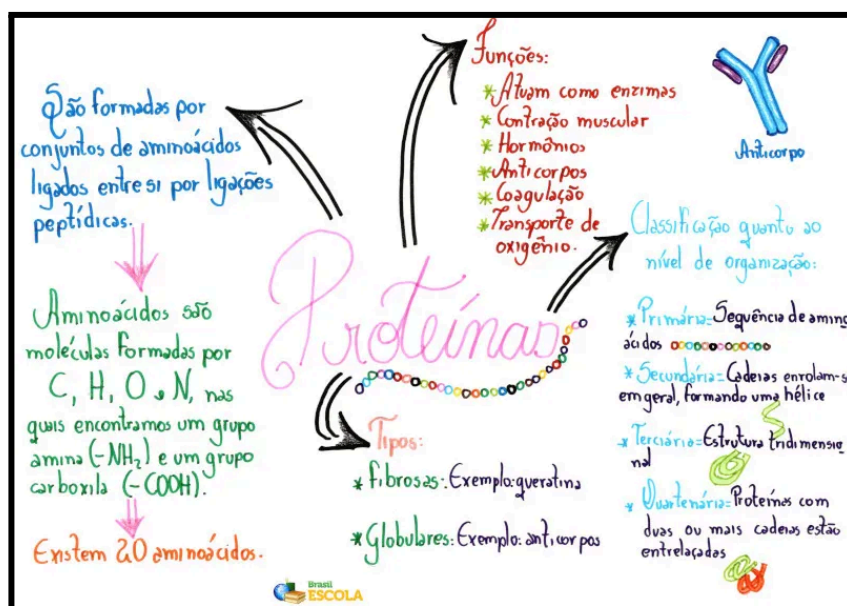 Proteínas
São formadas por
conjuntos de aminoácidos
ligados entre si por ligações
peptídicas.
Aminoácidos são
moléculas formadas por
C, H, O e N, nas
quais encontramos um grupo
amina (-NH₂) e um grupo
carboxila (-COOH).
Existem 20 aminoácidos.
Funções:
* Atuam como enzimas
* Contração muscular
* Hormônios
* Anticorpos
* Coagulação
* Transporte de
oxigênio.
Anticorpo
Classificação quanto ao
nível de organização:
* Primária = Sequência de amino
ácidos
* Secundária = Cadeias enrolam-s
em geral, formando uma hélice
* Terciária = Estrutura tridimensio
nal
* Quartenária = Proteínas com
duas ou mais cadeias estão
entrelaçadas
Tipos:
* Fibrosas: Exemplo: queratina
* Globulares: Exemplo: anticorpos
Brasil
ESCOLA